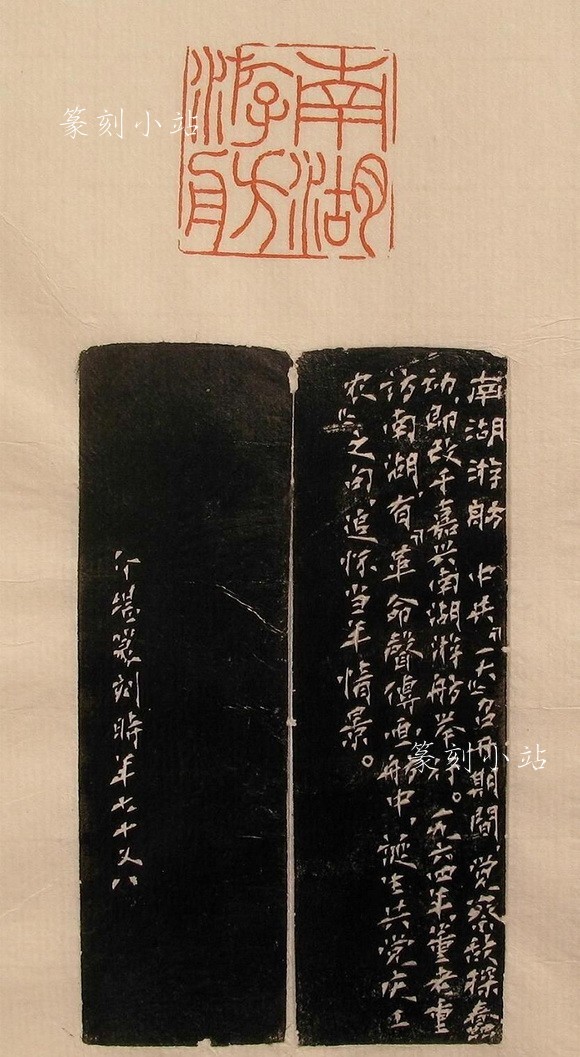 篆刻小站
南湖
游舫
南湖游舫 中共“一大”召开期間，觉察敌探蠢
动，即改于嘉兴南湖游舫举行。一九六四年，董老重
访南湖，有“革命聲傳画舫中，诞生共党庆工
农”之句，追怀当年情景。
介堪篆刻時年七十又八
篆刻小站